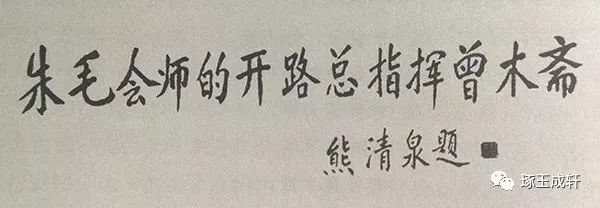 朱毛会师的开路总指挥曾木斋
熊清泉题
琢玉成轩